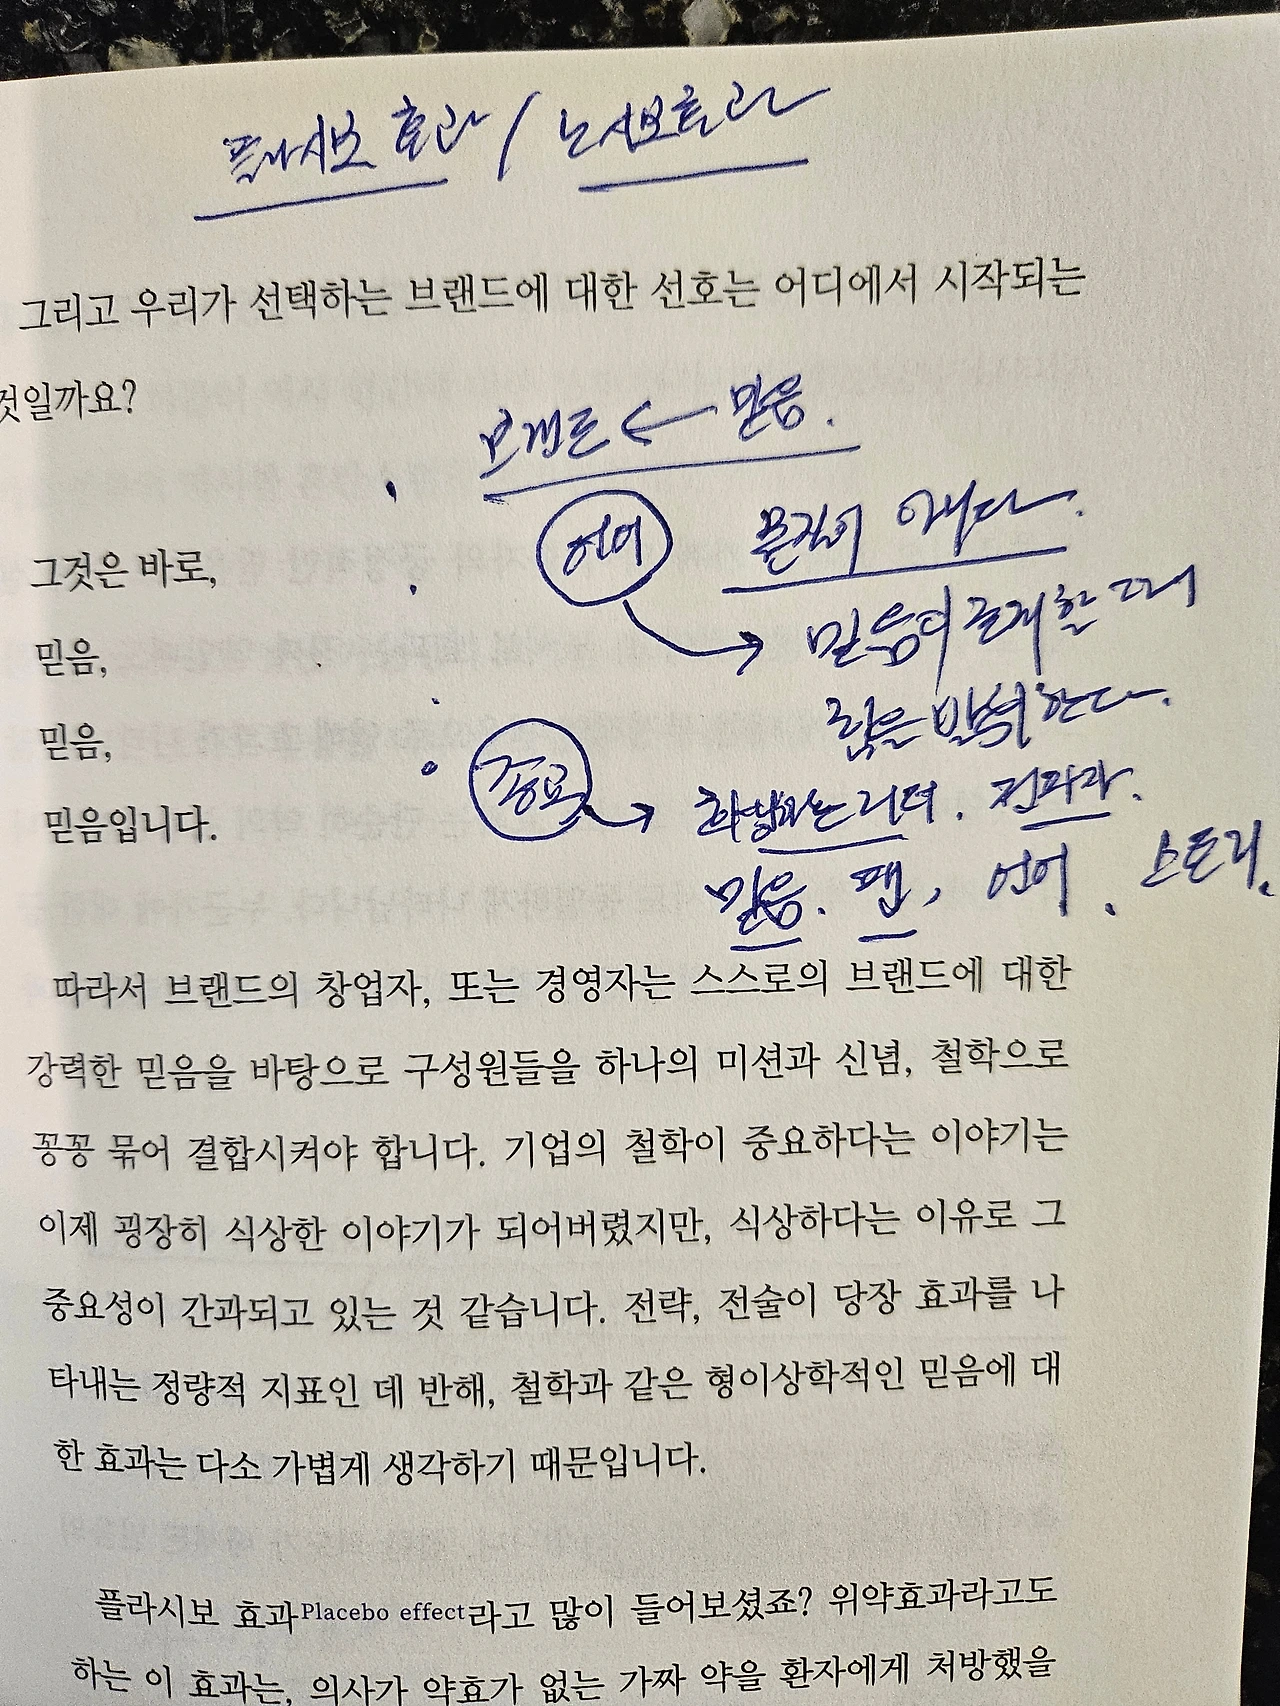 플라시보 효과 / 노시보효과
그리고 우리가 선택하는 브랜드에 대한 선호는 어디에서 시작되는
것일까요?
브랜드 ← 믿음.
언어 끝길이 이다.
그것은 바로,
→ 믿음이 존재할 때
믿음,
힘을 발휘한다.
믿음,
종교 → 리더. 전파자.
믿음입니다.
믿음. 팬, 언어, 스토리.
따라서 브랜드의 창업자, 또는 경영자는 스스로의 브랜드에 대한
강력한 믿음을 바탕으로 구성원들을 하나의 미션과 신념, 철학으로
꽁꽁 묶어 결합시켜야 합니다. 기업의 철학이 중요하다는 이야기는
이제 굉장히 식상한 이야기가 되어버렸지만, 식상하다는 이유로 그
중요성이 간과되고 있는 것 같습니다. 전략, 전술이 당장 효과를 나
타내는 정량적 지표인 데 반해, 철학과 같은 형이상학적인 믿음에 대
한 효과는 다소 가볍게 생각하기 때문입니다.
플라시보 효과Placebo effect라고 많이 들어보셨죠? 위약효과라고도
하는 이 효과는, 의사가 약효가 없는 가짜 약을 환자에게 처방했을